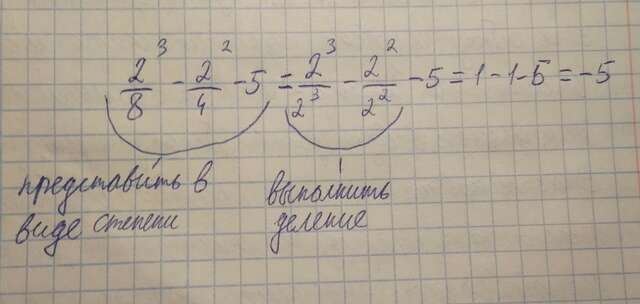 2³/8 - 2²/4 - 5 = 2³/2³ - 2²/2² - 5 = 1 - 1 - 5 = -5
представить в
виде степени
выполнить
деление